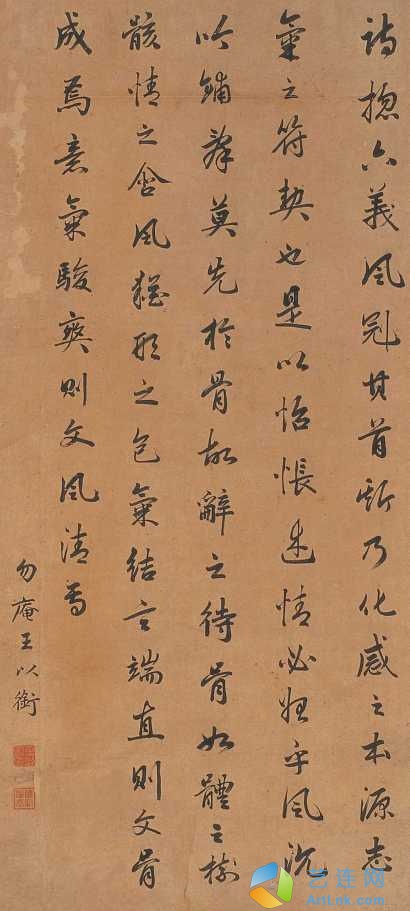 詩揔六義風冠其首斯乃化感之本源志
氣之符契也是以怊悵述情必始乎風沉
吟鋪辭莫先於骨故辭之待骨如體之樹
骸情之含風猶形之包氣結言端直則文骨
成焉意氣駿爽則文風清焉
勿庵王以銜
艺连网
Art1ink.com